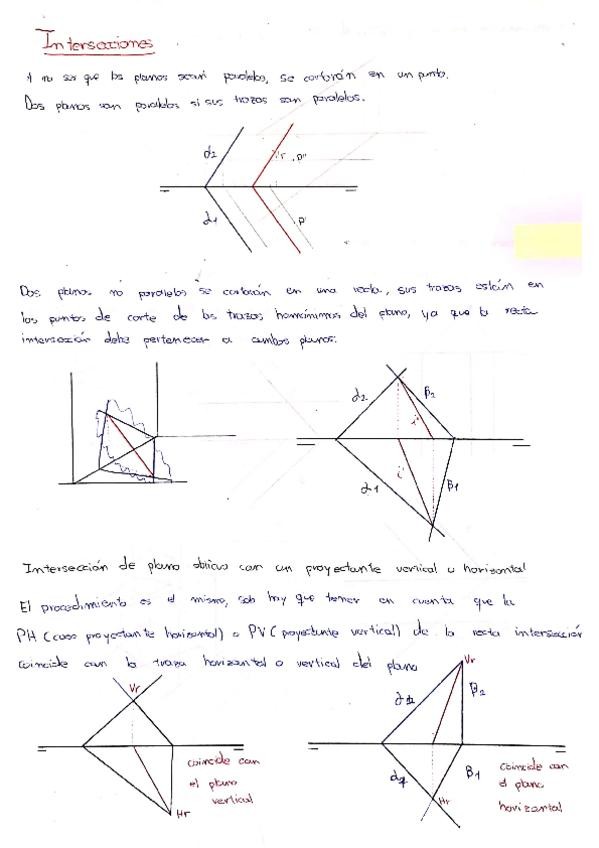 Intersecciones
A no ser que los planos sean paralelos, se cortarán en un punto.
Dos planos son paralelos si sus trazas son paralelos.
α2
Vr
.P''
α1
.P'
Dos planos no paralelos se cortarán en una recta, sus trazas están en
los puntos de corte de las trazas homónimas del plano, ya que la recta
intersección debe pertenecer a ambos planos.
α2
β2
i''
i'
α1
β1
Intersección de plano oblicuo con un proyectante vertical u horizontal
El procedimiento es el mismo, solo hay que tener en cuenta que la
PH (caso proyectante horizontal) o PV (proyectante vertical) de la recta intersección
coincide con la traza horizontal o vertical del plano
Vr
Vr
α2
β2
coincide con
el plano
vertical
Hr
α1
β1
Hr
Coincide con
el plano
horizontal